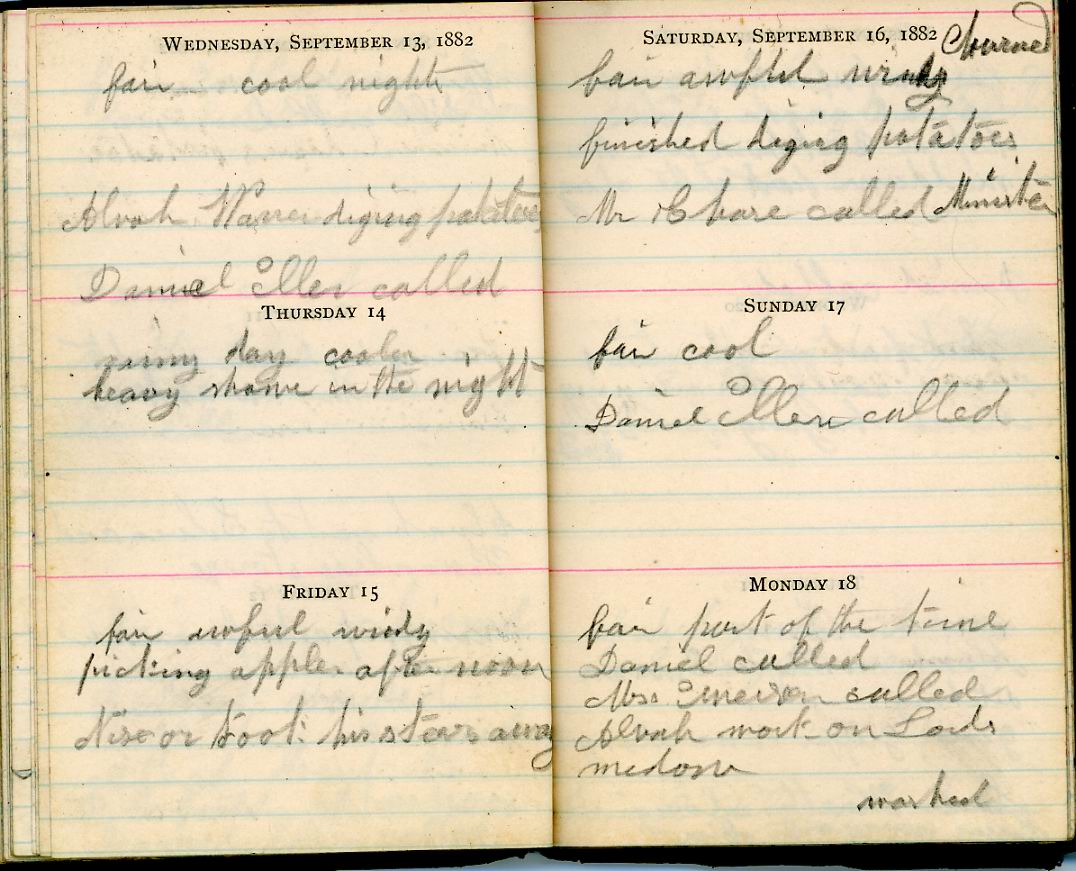 WEDNESDAY, SEPTEMBER 13, 1882
fair cool night
Alvah diging potatoes
Daniel Eller called
THURSDAY 14
rainy day cooler
heavy showe in the night
FRIDAY 15
fair awful windy
picking apples after noon
or took his stears away
SATURDAY, SEPTEMBER 16, 1882 Churned
fair awfull windy
finished diging potatoes
Mr Chase called Minister
SUNDAY 17
fair cool
Daniel Ellen called
MONDAY 18
fair part of the time
Daniel called
Mrs called
Alvah work on Lords
medow
washed